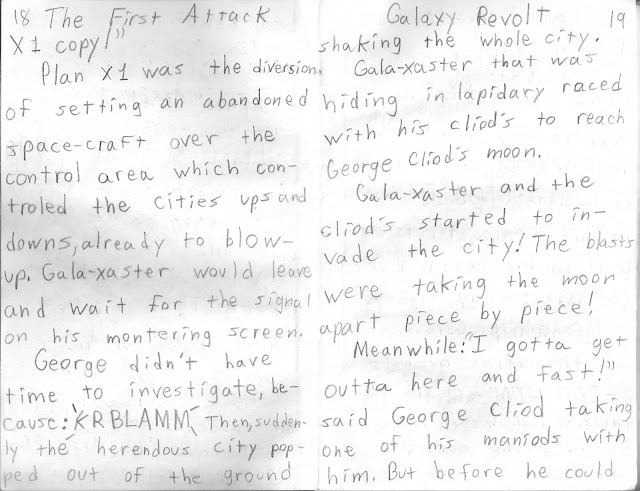 18 The First Attack
X1 copy!"
Plan X1 was the diversion,
of setting an abandoned
space-craft over the
control area which con-
troled the cities ups and
downs, already to blow-
up. Gala-xaster would leave
and wait for the signal
on his montering screen.
George didn't have
time to investigate, be-
cause: KRBLAMM, Then, sudden-
ly the herendous city pop-
ped out of the ground
Galaxy Revolt 19
shaking the whole city.
Gala-xaster that was
hiding in lapidary raced
with his cliod's to reach
George Cliod's moon.
Gala-xaster and the
cliod's started to in-
vade the city! The blasts
were taking the moon
apart piece by piece!
Meanwhile: "I gotta get
outta here and fast!"
said George Cliod taking
one of his maniods with
him. But before he could